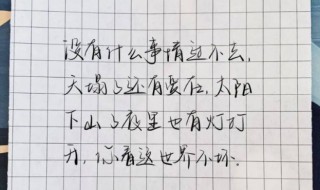 没有什么事情过不去，
天塌了还有聚在，太阳
下山了夜里也有灯打
开，你看这世界不坏．